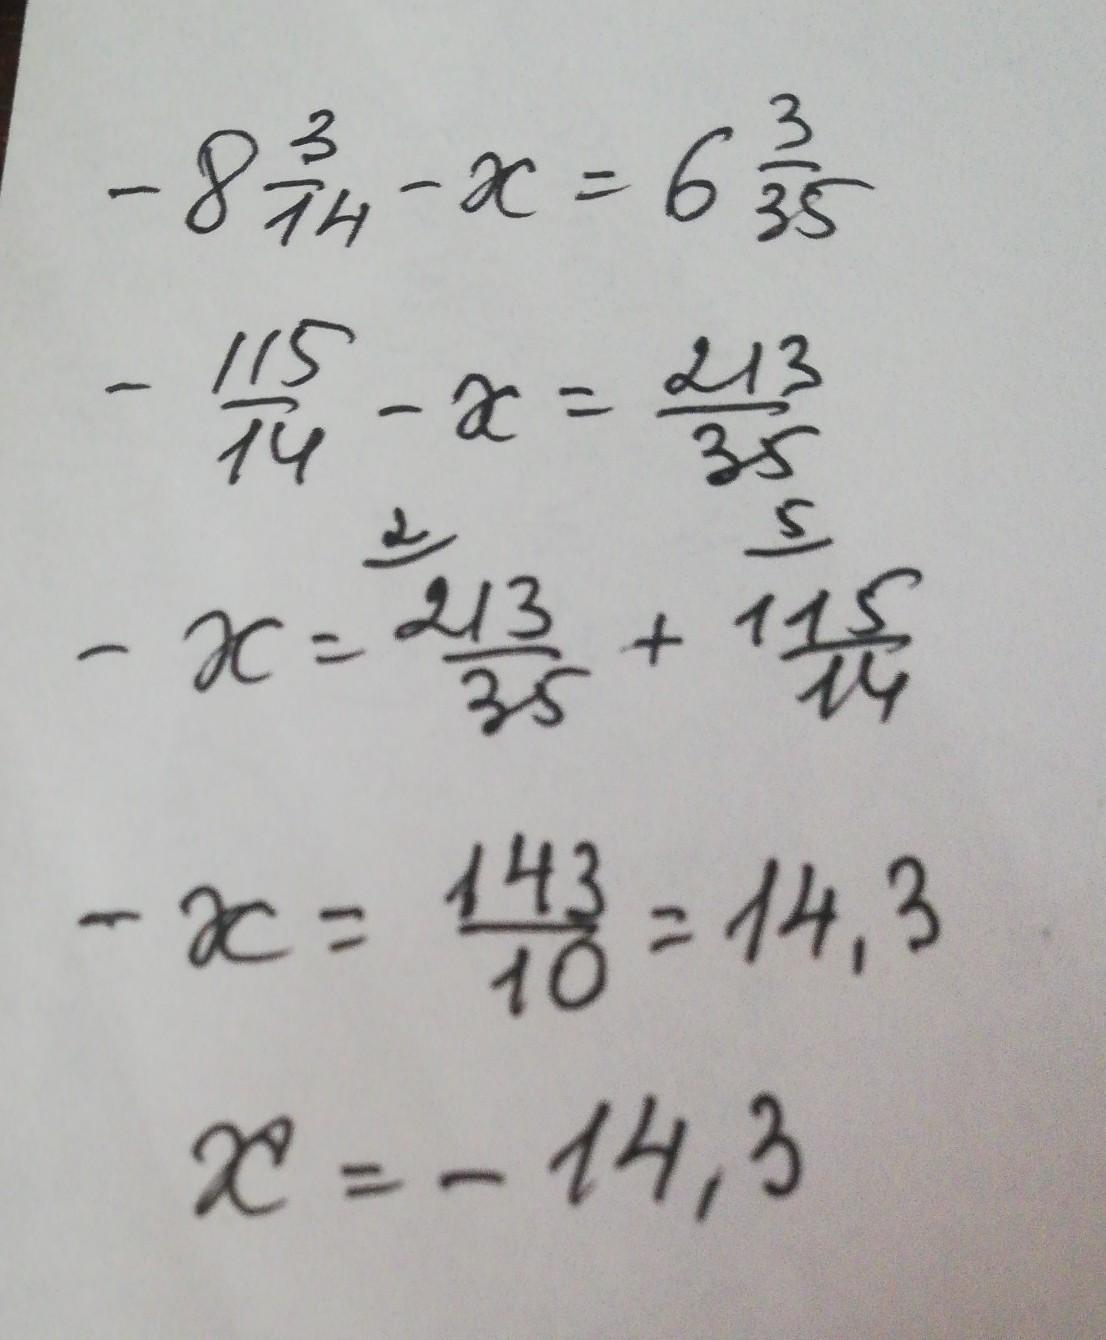 - 8 3/14 - x = 6 3/35
- 115/14 - x = 213/35
2 5
- x = 213/35 + 115/14
- x = 143/10 = 14,3
x = - 14,3